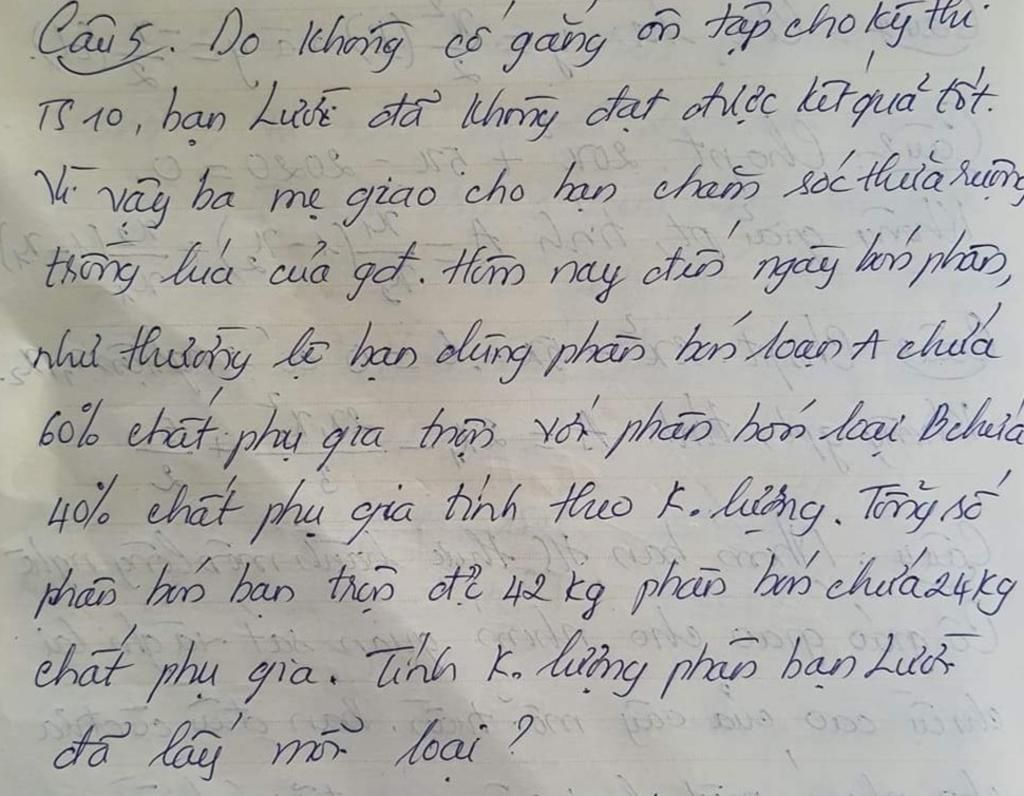 Câu 5. Do không cố gắng ôn tập cho kỳ thi
TS 10, bạn Lười đã không đạt được kết quả tốt.
Vì vậy ba mẹ giao cho bạn chăm sóc thửa ruộng
trồng lúa của gđ. Hôm nay đến ngày bón phân,
như thường lệ bạn dùng phân bón loại A chứa
60% chất phụ gia trộn với phân bón loại B chứa
40% chất phụ gia tính theo K. lượng. Tổng số
phân bón bạn trộn để 42 kg phân bón chứa 24 kg
chất phụ gia. Tính K. lượng phân bạn Lười
đã lấy mỗi loại?